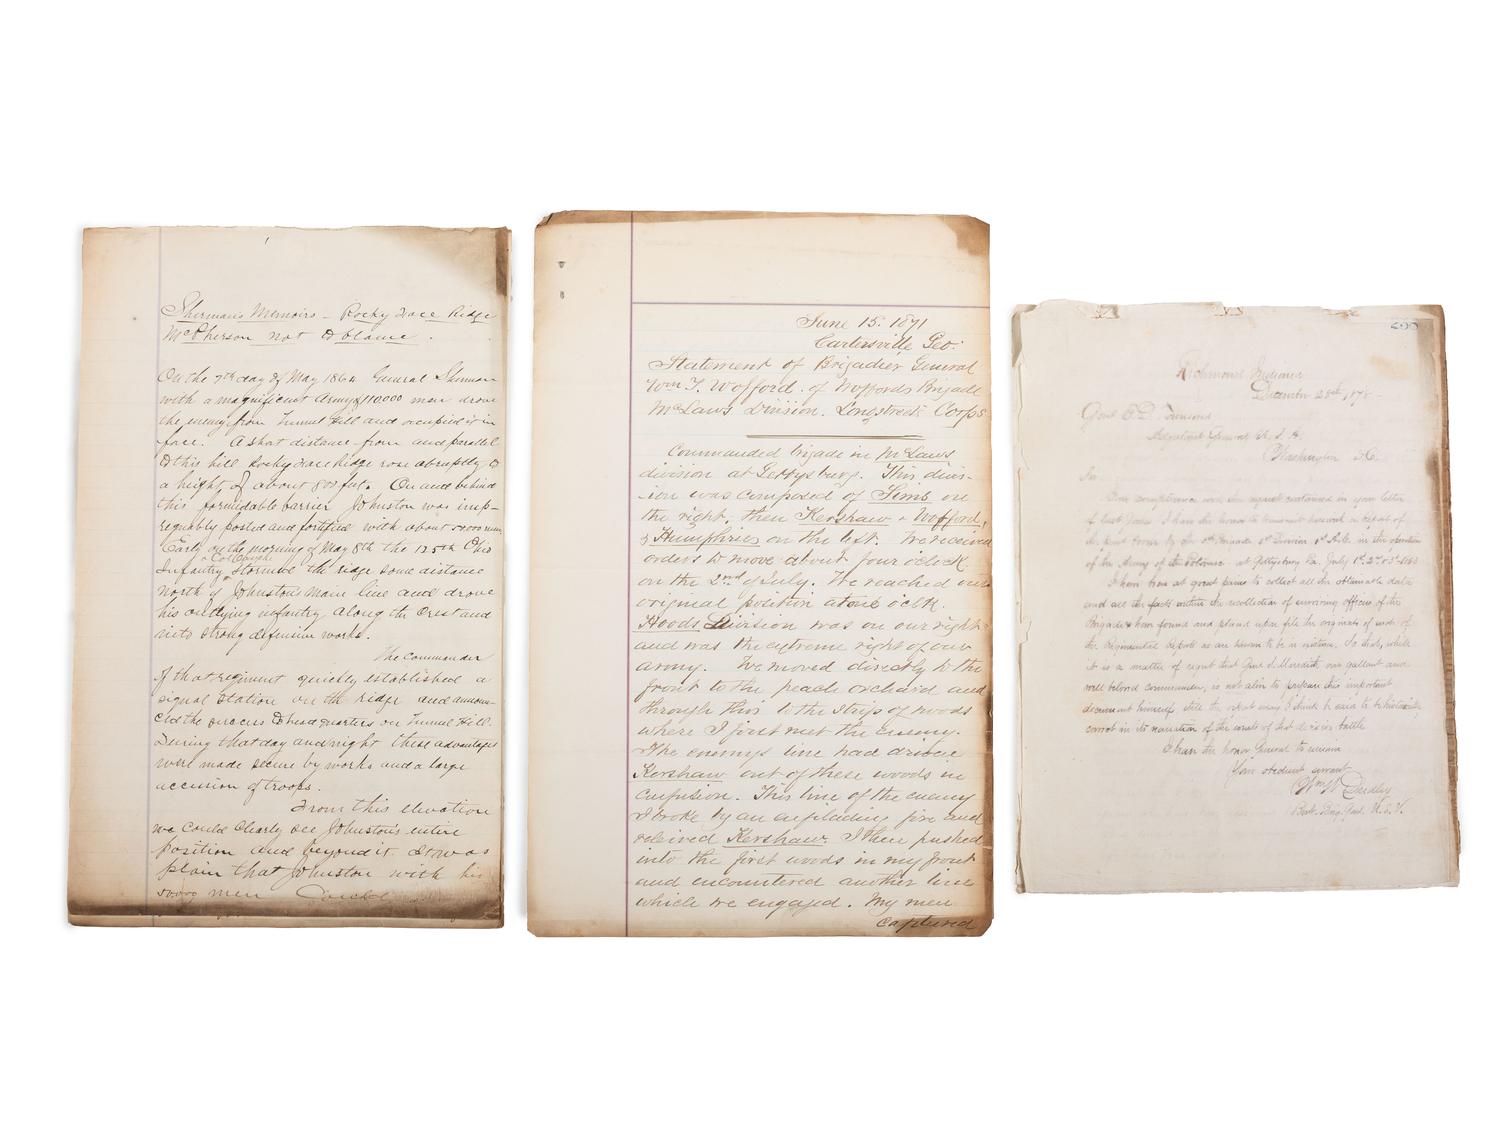 Sherman's Memoirs – Rocky Face Ridge
McPherson not to blame.
On the 7th day of May 1864 General Sherman
with a magnificent Army of 110000 men drove
the enemy from Tunnel Hill and occupied it in
face. A short distance from and parallel
to this hill Rocky Face Ridge rose abruptly to
a height of about 800 feet. On and behind
this formidable barrier Johnston was imp-
regnably posted and fortified with about 50000 men
Early on the morning of May 8th the 125th Ohio
Infantry Stormed the ridge some distance
north of Johnston's main line and drove
his outlying infantry along the Crest and
into strong defensive works.
The Commander
of that regiment quickly established a
signal Station on the ridge and announ-
ced the success to headquarters on Tunnel Hill.
During that day and night these advantages
were made secure by works and a large
accession of troops.
From this elevation
we could clearly see Johnston's entire
position and beyond it. It was
plain that Johnston with his
50000 men could
June 15. 1871
Cartersville Geo:
Statement of Brigadier General
Wm T. Wofford. of Woffords Brigade
McLaws Division. Longstreets Corps
Commanded brigade in McLaws
division at Gettysburg. This divis-
ion was composed of Sims on
the right, then Kershaw + Wofford,
& Humphries on the left. We received
orders to move about four o'clock
on the 2nd of July. We reached our
original position at one o'clk.
Hoods Division was on our right
and was the extreme right of our
army. We moved directly to the
front to the peach orchard and
through this to the strips of woods
where I first met the enemy.
The enemys line had driven
Kershaw out of these woods in
confusion. This line of the enemy
I broke by an enfilading fire and
relieved Kershaw. I then pushed
into the first woods in my front
and encountered another line
which we engaged. My men
captured
Richmond Indiana
December 28th, 1878
Genl E. D. Townsend
Adjutant General U. S. A.
Washington D.C.
Sir
In compliance with the request contained in your letter
I have the honor to transmit herewith a Report of
the part borne by the 1st Brigade 1st Division 1st A.C. in the operations
of the Army of the Potomac at Gettysburg Pa. July 1st 2d & 3d 1863
I have been at great pains to collect all the obtainable data
and all the facts within the recollection of surviving officers of the
Brigade & have found and placed upon file the originals of such of
the Regimental Reports as are known to be in existence. So that, while
it is a matter of regret that Genl S. Meredith, our gallant and
well beloved commander, is not able to prepare this important
document himself, still the
correct in its narration of the events of that decisive battle
I have the honor General to remain
Your obedient servant
Wm W Dudley
Bvt. Brig. Genl. U.S.V.